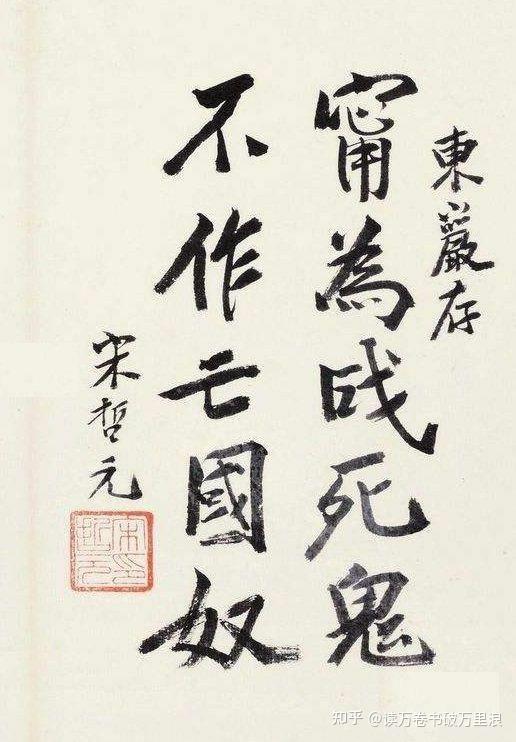 東巖存
甯為战死鬼
不作亡國奴
宋哲元
知乎 @读万卷书破万里浪